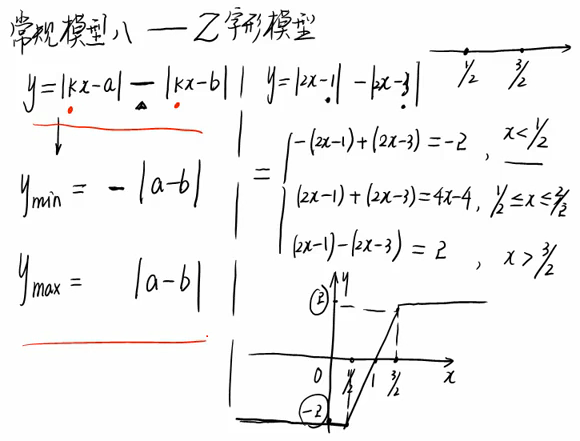 常规模型八 — Z字形模型
1/2 3/2
y=|kx-a| — |kx-b|
y_min = -|a-b|
y_max = |a-b|
y=|2x-1| -|2x-3|
= { -(2x-1)+(2x-3)=-2 , x<1/2
(2x-1)+(2x-3)=4x-4, 1/2≤x≤3/2
(2x-1)-(2x-3)=2 , x>3/2
y
2
0 1/2 1 3/2 x
-2